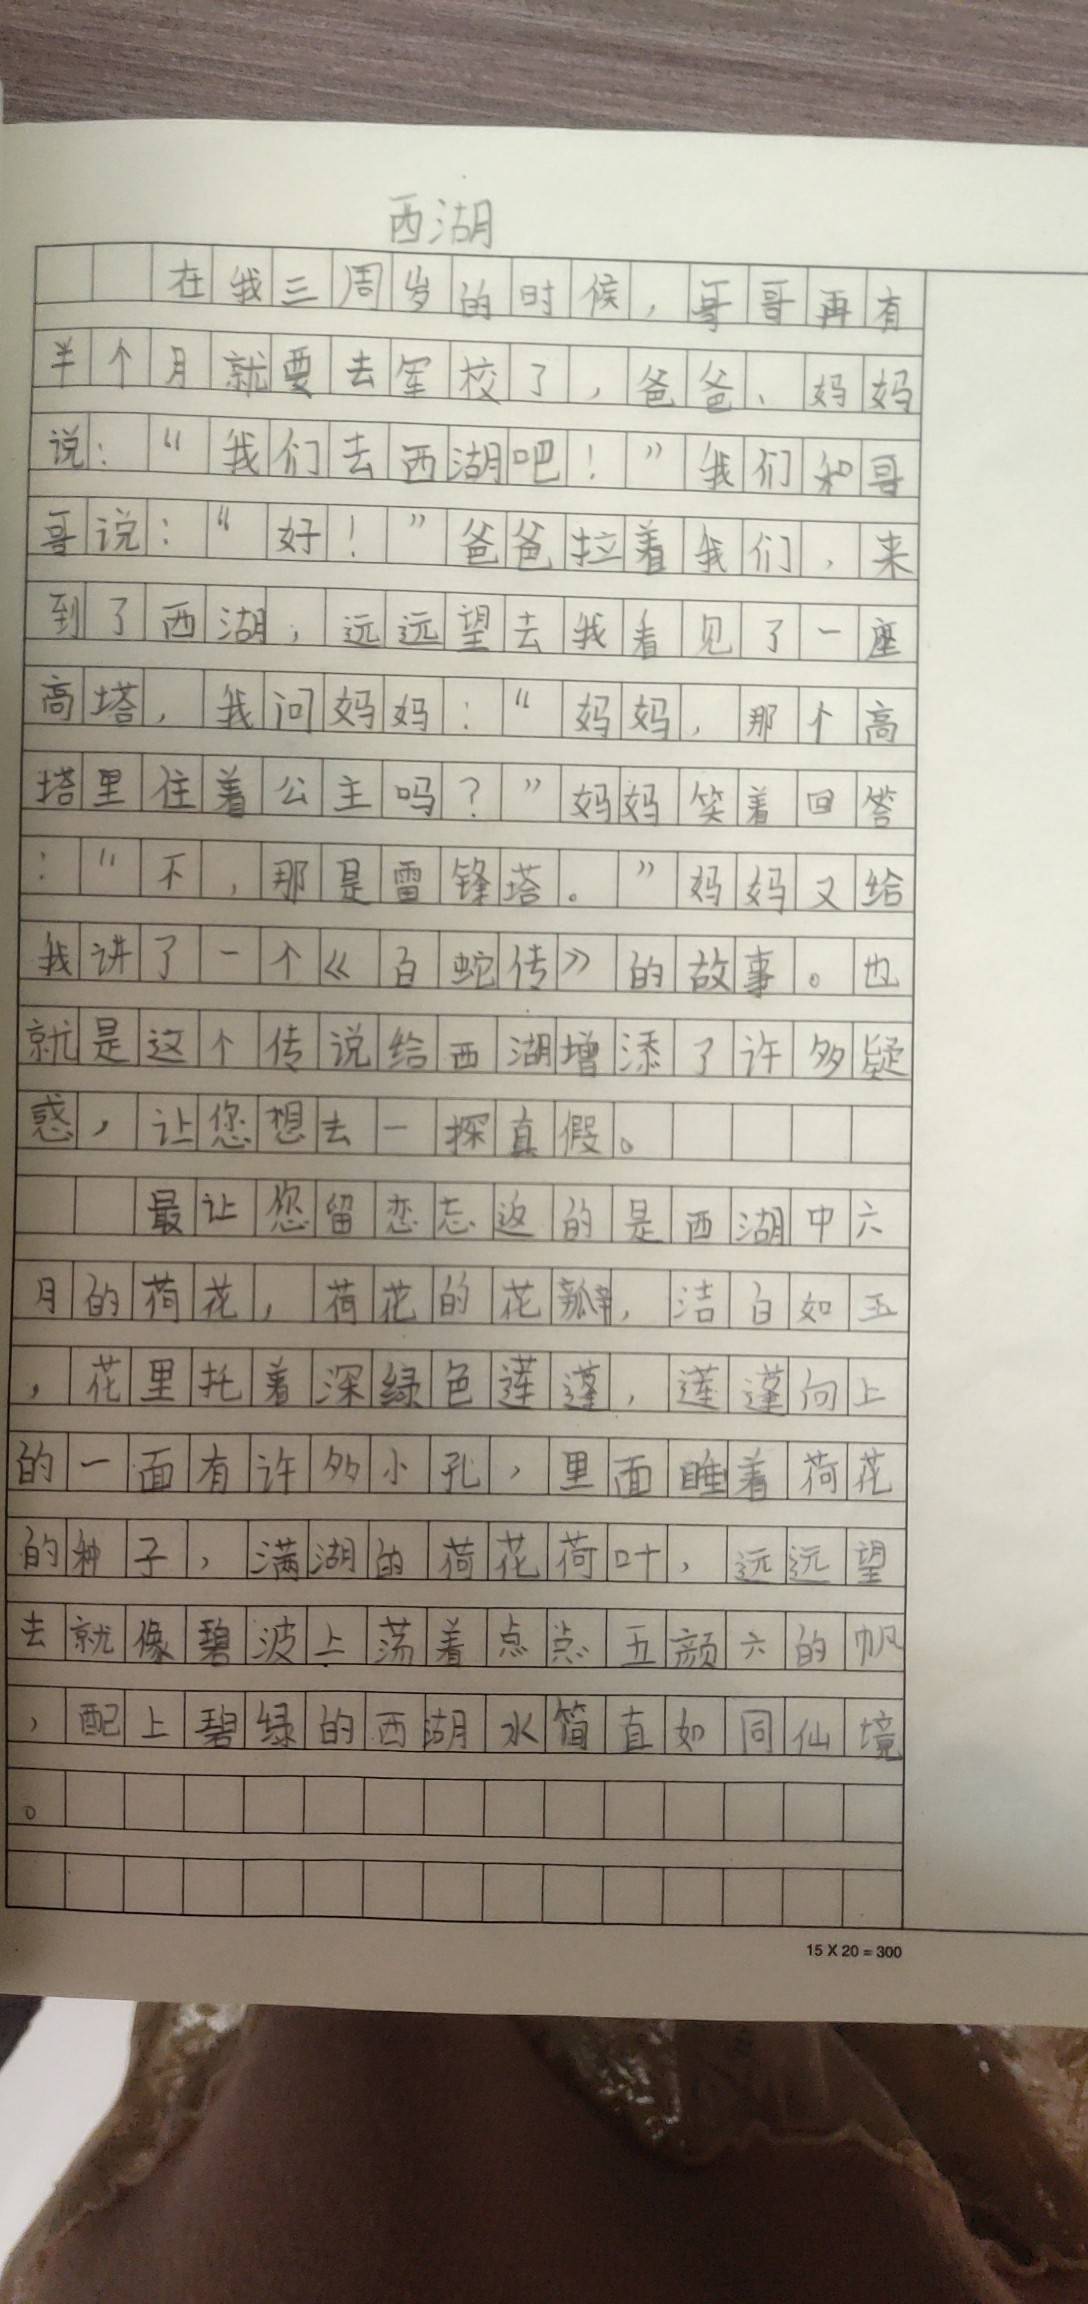 西湖
在我三周岁的时候，哥哥再有
半个月就要去军校了，爸爸、妈妈
说：“我们去西湖吧！”我们和哥
哥说：“好！”爸爸拉着我们，来
到了西湖，远远望去我看见了一座
高塔，我问妈妈：“妈妈，那个高
塔里住着公主吗？”妈妈笑着回答
：“不，那是雷锋塔。”妈妈又给
我讲了一个《白蛇传》的故事。也
就是这个传说给西湖增添了许多疑
惑，让您想去一探真假。
最让您留恋忘返的是西湖中六
月的荷花，荷花的花瓣，洁白如玉
，花里托着深绿色莲蓬，莲蓬向上
的一面有许多小孔，里面睡着荷花
的种子，满湖的荷花荷叶，远远望
去就像碧波上荡着点点五颜六的帆
，配上碧绿的西湖水简直如同仙境
。
15 X 20 = 300